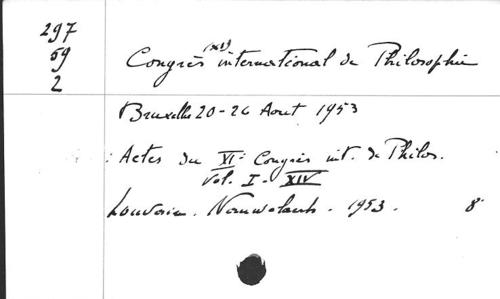 297
59
2
Congrès (XI) international de Philosophie
Bruxelles 20-26 Aout 1953
: Actes du XIe Congrès int. de Philos.
Vol. I - XIV
Louvain. Nauwelaerts. 1953. 8°